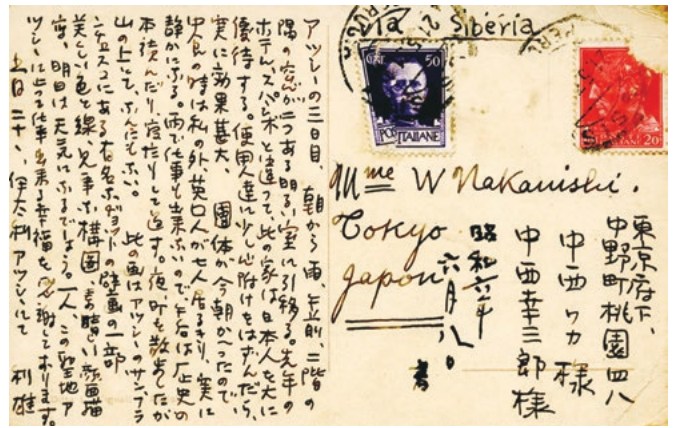 Via Sibéria
CENT. 50
POSTE ITALIANE
20
Mme W Nakanishi.
Tokyo
Japon
東京府下、
中野町桃園四八
中西ワカ様
中西幸三郎様
昭和六年
六月八日
アツシーの三日目、朝から雨、午前、二階の
隅の窓が二つある明るい室に引移る。先年の
ホテルスバシオと違つて、此の家は日本人を大に
優待する。使用人達に少し心附けをはずんだら、
実に効果甚大、團体が今朝かへつたので
中食の時は私の外英口人が七人居るきり、実に
静かになる。雨で仕事も出来ないので午后は歴史の
本読んだり寝たりして過す。夜、町を散歩したが
山の上とて、なんにもない。 此の画はアツシーのサンフラ
ンチエスコにある有名なジヨットの壁画の一部
美しい色と線、見事な構圖、素晴しい顔面描
写、明日は天気になるでせう。一人、この聖地ア
ツシーに止つて仕事出来る幸福を感謝しております。
二十、伊太利アツシーにて 利雄